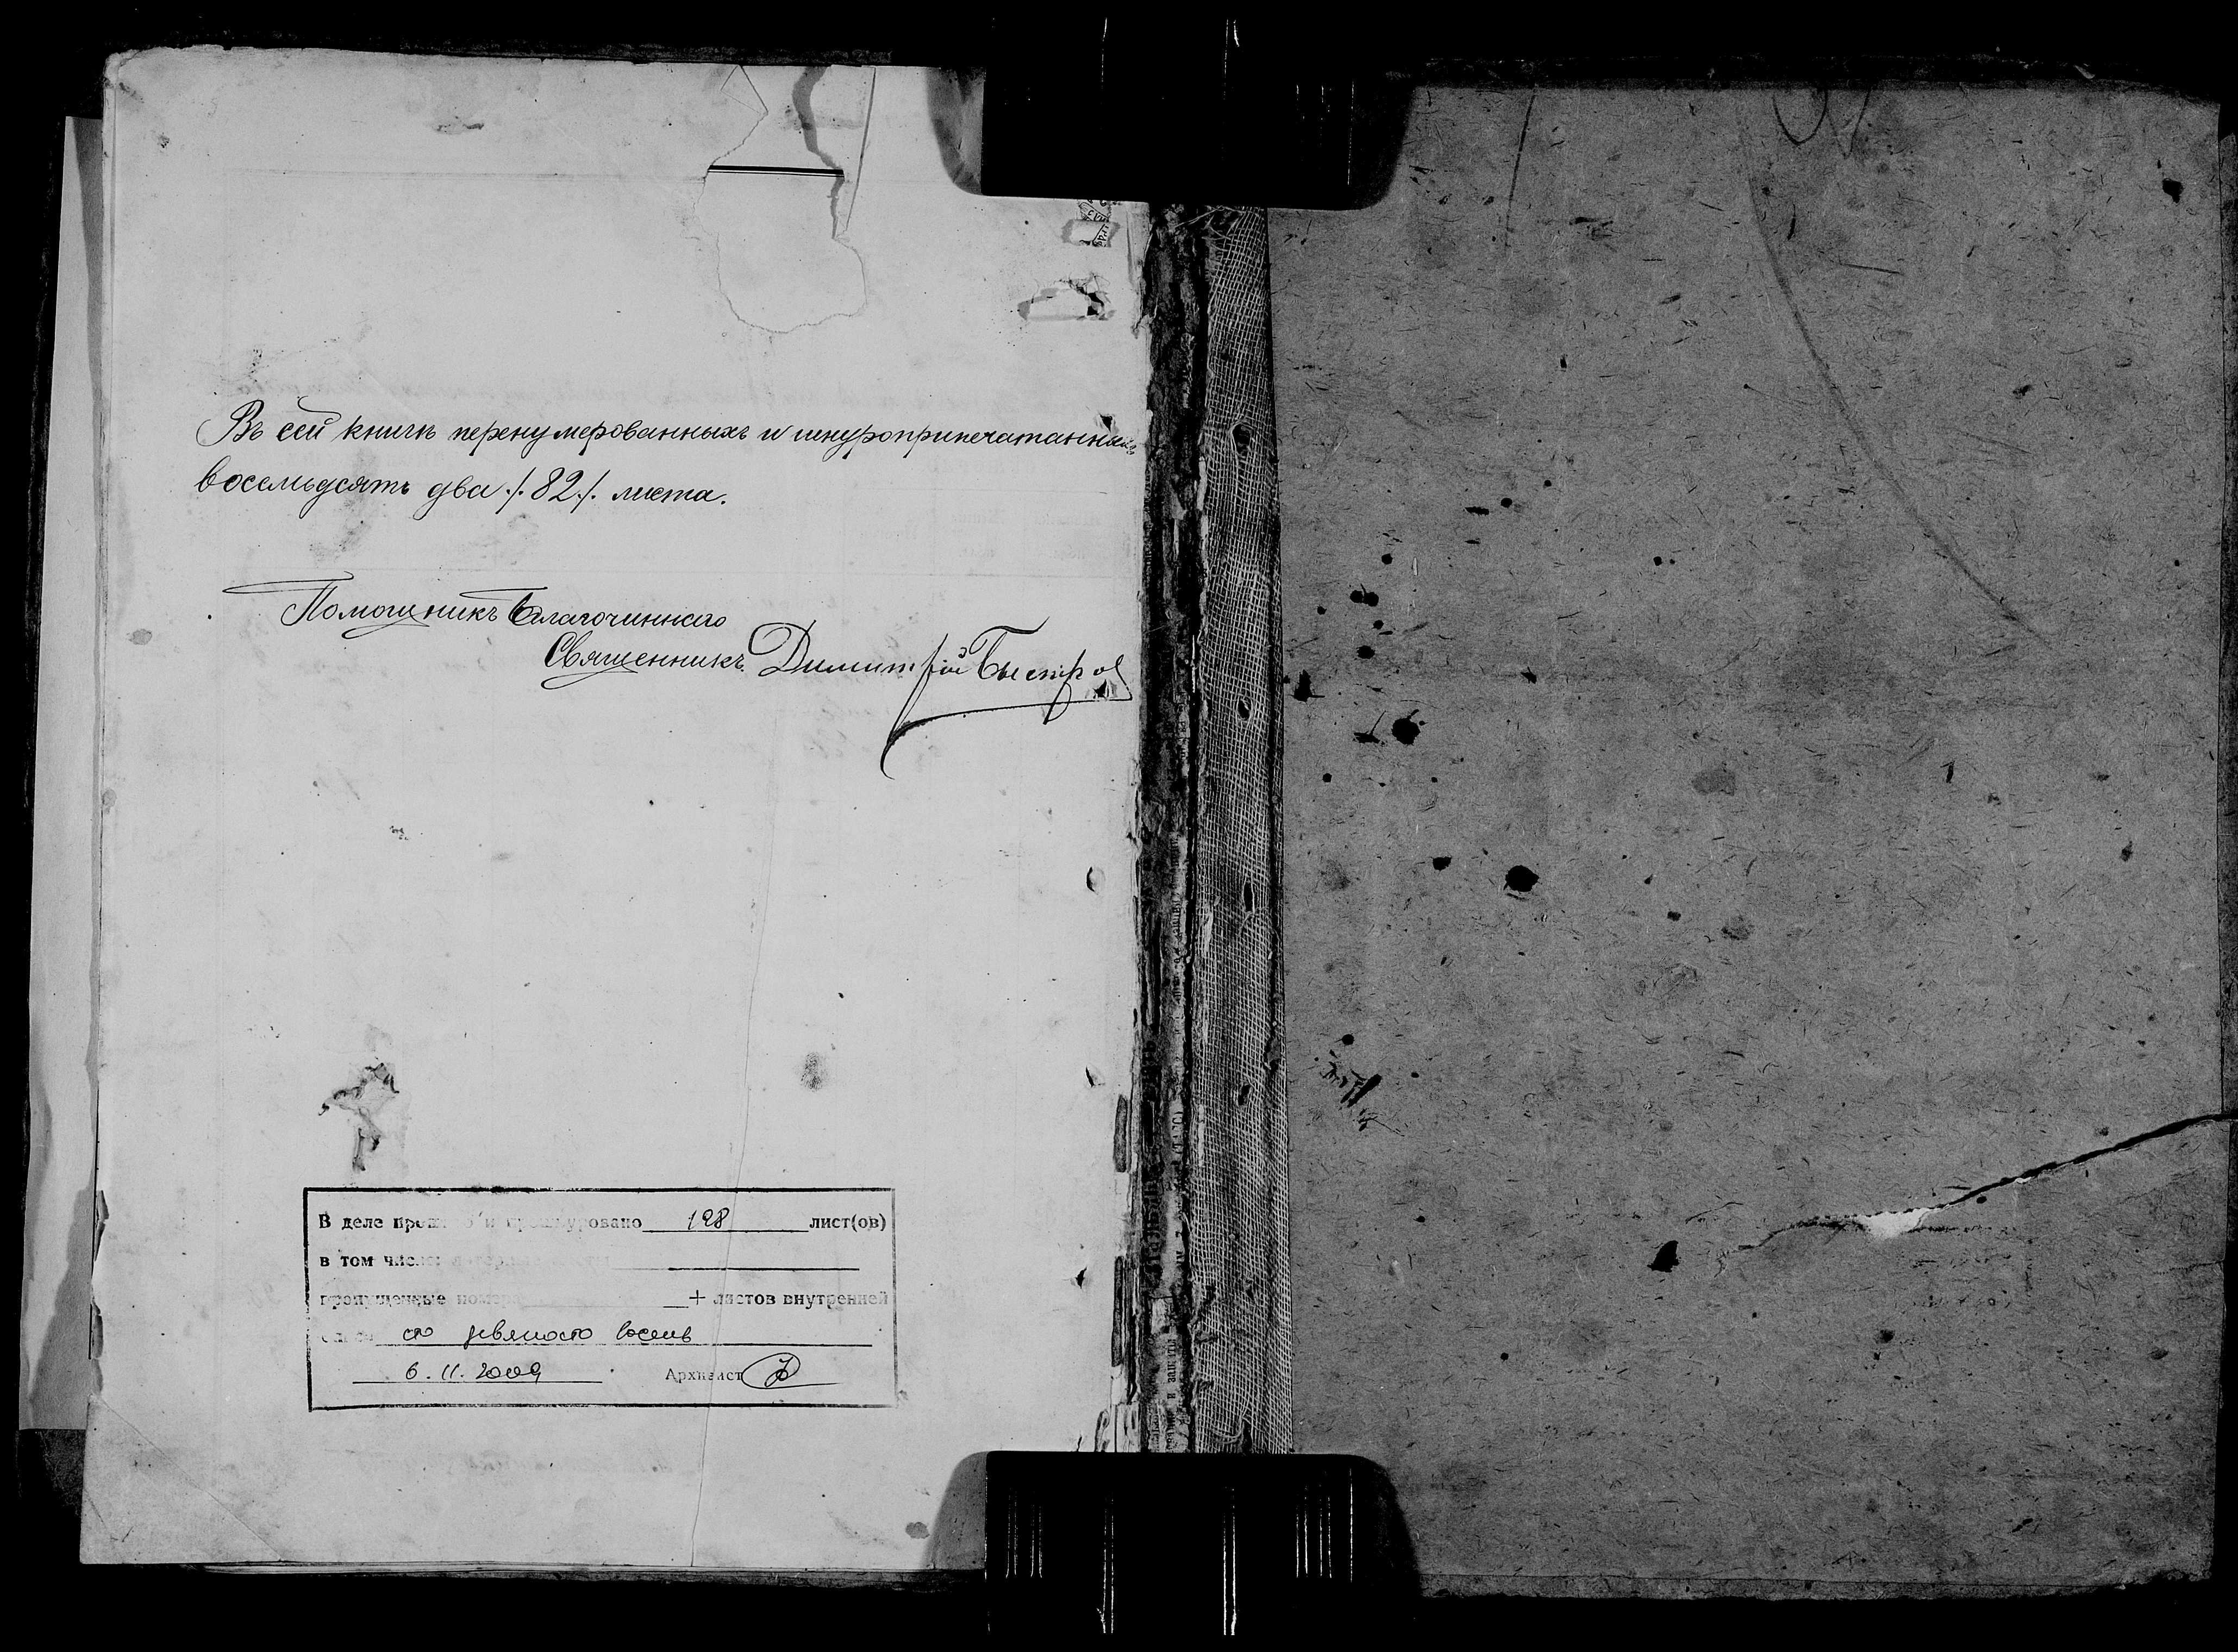 Въ сей книгѣ перенумерованныхъ и шнуроприпечатанныхъ
восемьдесятъ два ./. 82 ./. листа.
Помощникъ Благочиннаго
Священникъ Димитрій Быстров
В деле прошито и прошнуровано 198 лист(ов)
в том числе:
пропущенные номера + листов внутренней
описи сто девяносто восемь
6.11.2009 Архивист